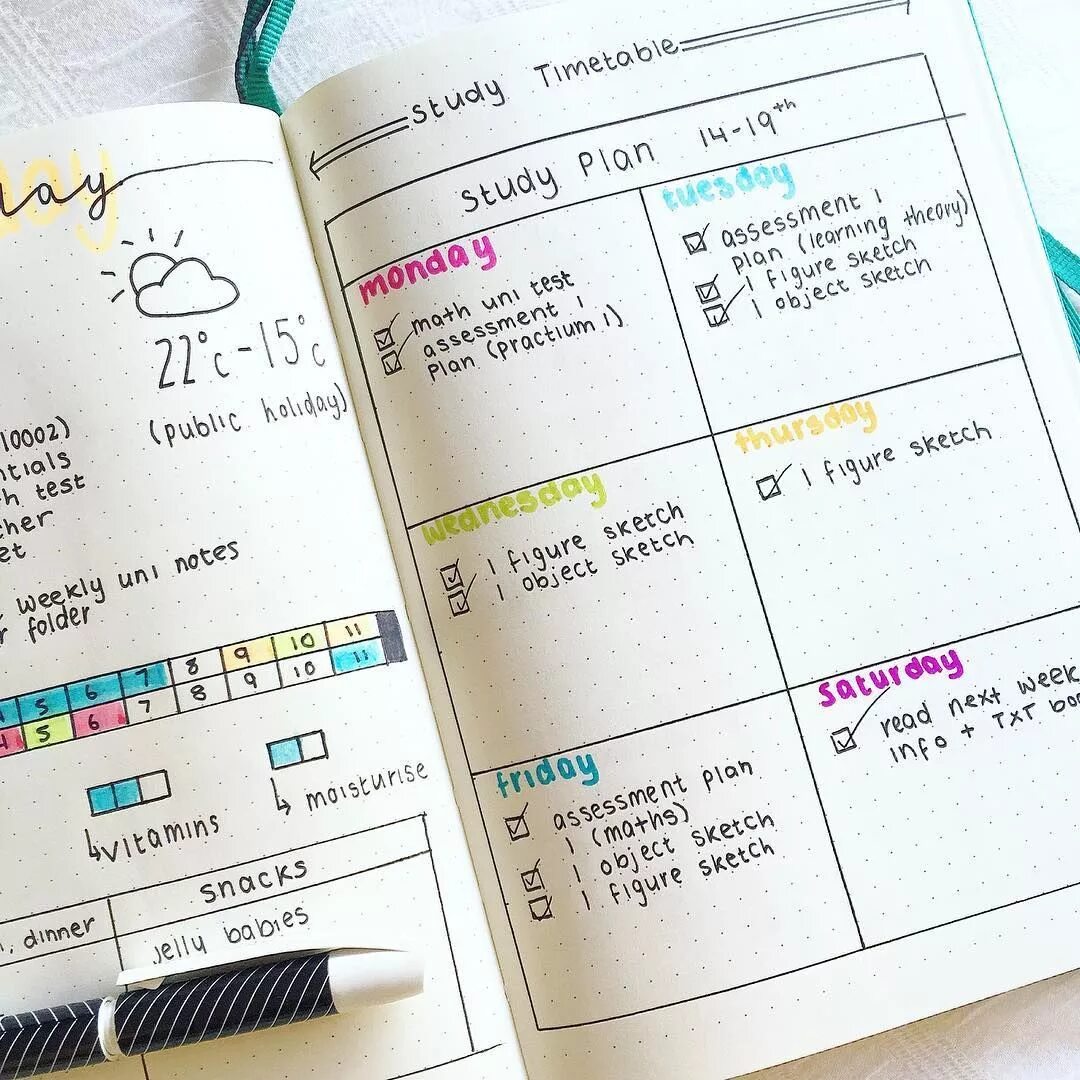 day
22°c-15°c
(public holiday)
10002)
test
weekly uni notes
folder
5 6 7 8 9 10 11
4 5 6 7 8 9 10 11
vitamins
moisturise
snacks
dinner
jelly babies
study Timetable
study Plan 14-19th
monday
math uni test
assessment 1
plan (practium 1)
tuesday
assessment 1
plan (learning theory)
1 figure sketch
1 object sketch
wednesday
1 figure sketch
1 object sketch
thursday
1 figure sketch
friday
assessment plan
1 (maths)
1 object sketch
1 figure sketch
saturday
read next week
info + TxT